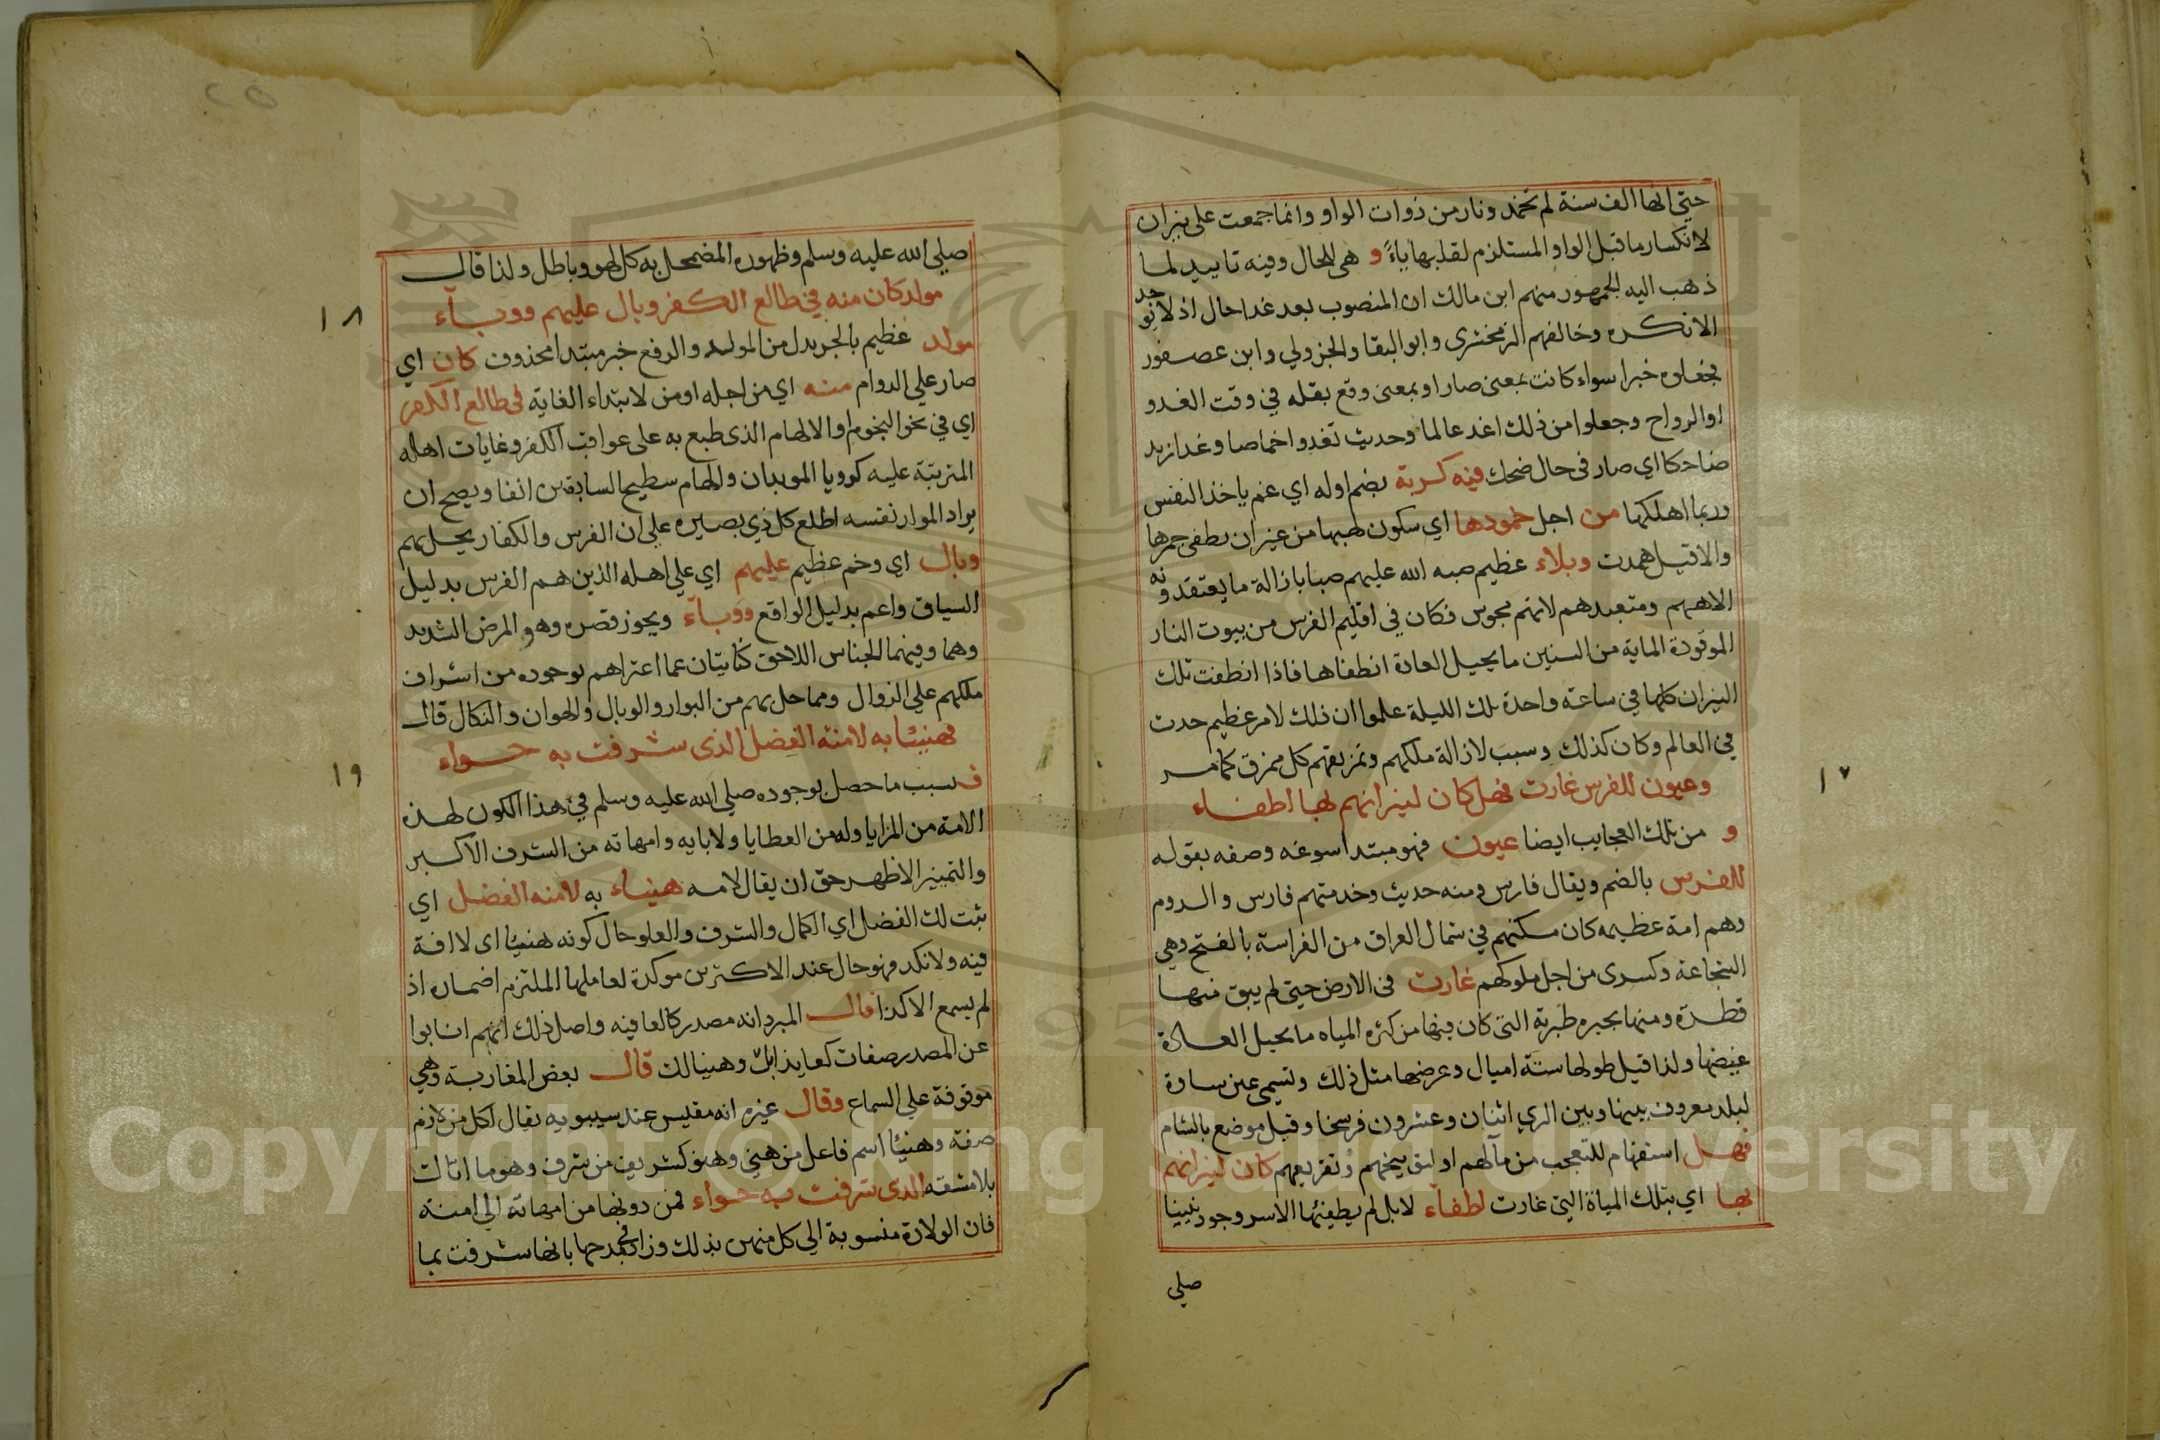 حتى انها الف سنة لم تخمد ونار من ذوات الواو وانما جمعت على نيران
لانكسار ما قبل الواو المستلزم لقلبها ياءً و هى للحال وفيه تاييد لما
ذهب اليه الجمهور منهم ابن مالك ان المنصوب بعد غدا حال اذ لا توجد
الا نكره وخالفهم الزمخشرى وابو البقا والجزولي وابن عصفور
فجعلوه خبرا سواء كانت بمعنى صار او بمعنى وقع بقله في وقت الغدو
او الرواح وجعلوا من ذلك اغد عالما وحديث تغدوا خماصا وغدا زيد
ضاحكا اي صار في حال ضحك فيه كربة بضم اوله اي غم ياخذ النفس
وربما اهلكها من اجل خمودها اي سكون لهبها من غير ان يطفى جمرها
والا قيل همدت وبلاء عظيم صبه الله عليهم صبا بازالة ما يعتقدونه
الاههم ومتعبدهم لانهم مجوس فكان في اقليم الفرس من بيوت النار
الموقودة الماية من السنين ما يحيل العادة انطفاها فاذا انطفت تلك
النيران كلها في ساعة واحدة تلك الليلة علموا ان ذلك لامر عظيم حدث
في العالم وكان كذلك وسبب لازالة ملكهم وتمزيقهم كل ممزق كما مر
وعيون للفرس غارت فهل كان لنيرانهم بها اطفاء
١٧
و من تلك العجايب ايضا عيون فهو مبتدا سوغه وصفه بقوله
للفرس بالضم ويقال فارس ومنه حديث وخدمتهم فارس والروم
وهم امة عظيمه كان مسكنهم في شمال العراق من الفراسة بالفتح وهي
الشجاعة وكسرى من اجل ملوكهم غارت في الارض حتى لم يبق منها
قطرة ومنها بحيره طبرية التى كان فيها من كثره المياه ما يحيل العادة
غيضها ولذا قيل طولها ستة اميال وعرضها مثل ذلك وتسمى عين ساوة
لبلد معروف بينها وبين الري اثنان وعشرون فرسخا وقيل موضع بالشام
فهل استفهام للتعجب من مآلهم او لتوبيخهم وتقريعهم كان لنيرانهم
بها اي بتلك المياة التي غارت اطفاء لا بل لم يطفيئها الا سر وجود نبينا
صلي
صلى الله عليه وسلم وظهوره المضمحل به كل لهو وباطل ولذا قال
مولد كان منه في طالع الكفر وبال عليهم ووباء
١٨
مولد عظيم بالجر بدل من المولد والرفع خبر مبتدا محذوف كان اي
صار على الدوام منه اي من اجله او من لابتداء الغاية في طالع الكفر
اي في نحو النجوم او الالهام الذى طبع به على عواقب الكفر وغايات اهله
المترتبة عليه كرويا الموبدان والهام سطيح السابقين انفا ويصح ان
يراد المولد نفسه اطلع كل ذي بصيره على ان الفرس والكفار يحل بهم
وبال اي وخم عظيم عليهم اي على اهله الذين هم الفرس بدليل
السياق واعم بدليل الواقع ووباء ويجوز قصره وهو المرض الشديد
وهما وفيهما الجناس اللاحق كنايتان عما اعتراهم بوجوده من اشراف
ملكهم على الزوال ومما حل بهم من البوار والوبال والهوان والنكال قال
فهنيئا به لامنه الفضل الذى شرفت به حواء
١٩
ف بسبب ما حصل بوجوده صلى الله عليه وسلم في هذا الكون لهذه
الامة من المزايا وله من العطايا ولابايه وامهاته من الشرف الاكبر
والتمييز الاظهر حق ان يقال لامه هنياء به لامنه الفضل اي
ثبت لك الفضل اي الكمال والشرف والعلو حال كونه هنيئا اى لا افة
فيه ولا نكد فهو حال عند الاكثرين موكدة لعاملها الملتزم اضماره اذ
لم يسمع الا كذا قال المبرد انه مصدر كالعافيه واصل ذلك انهم انابوا
عن المصدر صفات كعايذا بك وهنيا لك قال بعض المغاربة وهي
موقوفة على السماع وقال غيره انه مقيس عند سيبويه يقال لكل من لازم
صفة وهنيئا اسم فاعل من هني وهنو كشريف من شرف وهو ما اتاك
بلا مشقة الذى شرفت به حواء فمن دونها من امهاته الى امنة
فان الولادة منسوبة الى كل منهن بذلك وزاد بمدحها بانها شرفت بما